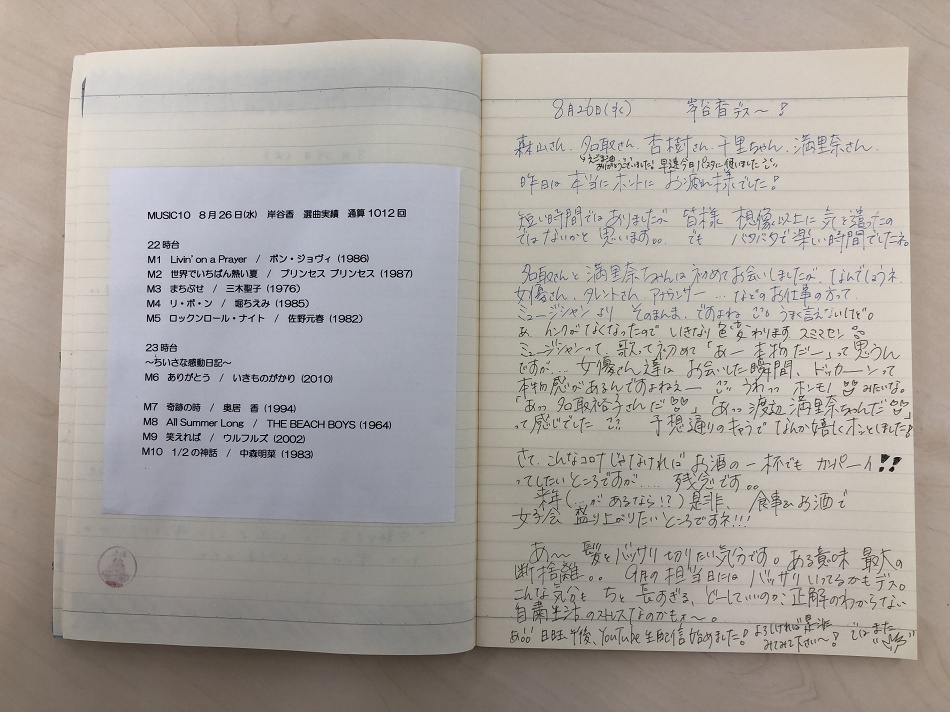 MUSIC10 8月26日(水) 岸谷香 選曲実績 通算1012回
22時台
M1 Livin' on a Prayer / ボン・ジョヴィ (1986)
M2 世界でいちばん熱い夏 / プリンセス プリンセス (1987)
M3 まちぶせ / 三木聖子 (1976)
M4 リ・ボ・ン / 堀ちえみ (1985)
M5 ロックンロール・ナイト / 佐野元春 (1982)
23時台
～ちいさな感動日記～
M6 ありがとう / いきものがかり (2010)
M7 奇跡の時 / 奥居 香 (1994)
M8 All Summer Long / THE BEACH BOYS (1964)
M9 笑えれば / ウルフルズ (2002)
M10 1/2の神話 / 中森明菜 (1983)
8月26日(水) 岸谷香デス〜!
森山さん、名取さん、杏樹さん、千里ちゃん、満里奈さん、
えごま油ありがとうございました! 早速今日パスタに使いました
昨日は本当にホントにお疲れ様でした!
短い時間ではありましたが 皆様 想像以上に気を遣ったの
ではないかと思います。。でも バタバタで楽しい時間でしたネ。
名取さんと満里奈ちゃんは初めてお会いしましたが、なんでしょうネ、
女優さん、タレントさん、アナウンサー…などのお仕事の方って、
ミュージシャンより そのまんま、ですよね うまく言えないけど。
あ、インクがなくなったので いきなり色変わります スミマセン
ミュージシャンって、歌って初めて「あー本物だー」って思うん
ですが… 女優さん達は お会いした瞬間、ドッカーンって
本物感があるんですよねえー うわっっ ホンモノ みたいな。
「あっっ 名取裕子さんだ」、「あっっ 渡辺満里奈ちゃんだ」
って感じでした 予想通りのキャラで なんか嬉しくホッとしました!
さて、こんなコロナじゃなければ お酒の一杯でも カンパーイ!!
ってしたいところですが…. 残念です。。
来年(…があるなら!?) 是非、食事&お酒で
女子会 盛り上がりたいところですネ!!!
あ〜 髪をバッサリ切りたい気分です。ある意味 最大の
断捨離。。 9月の担当日には バッサリいってるかもデス。
こんな気分も ちと 長すぎる、どーしていいのか、正解のわからない
自粛生活のストレスなのかもォ〜。
あ。。日曜、午後、YouTube生配信始めました! よろしければ是非
みてみて下さい〜! ではまた